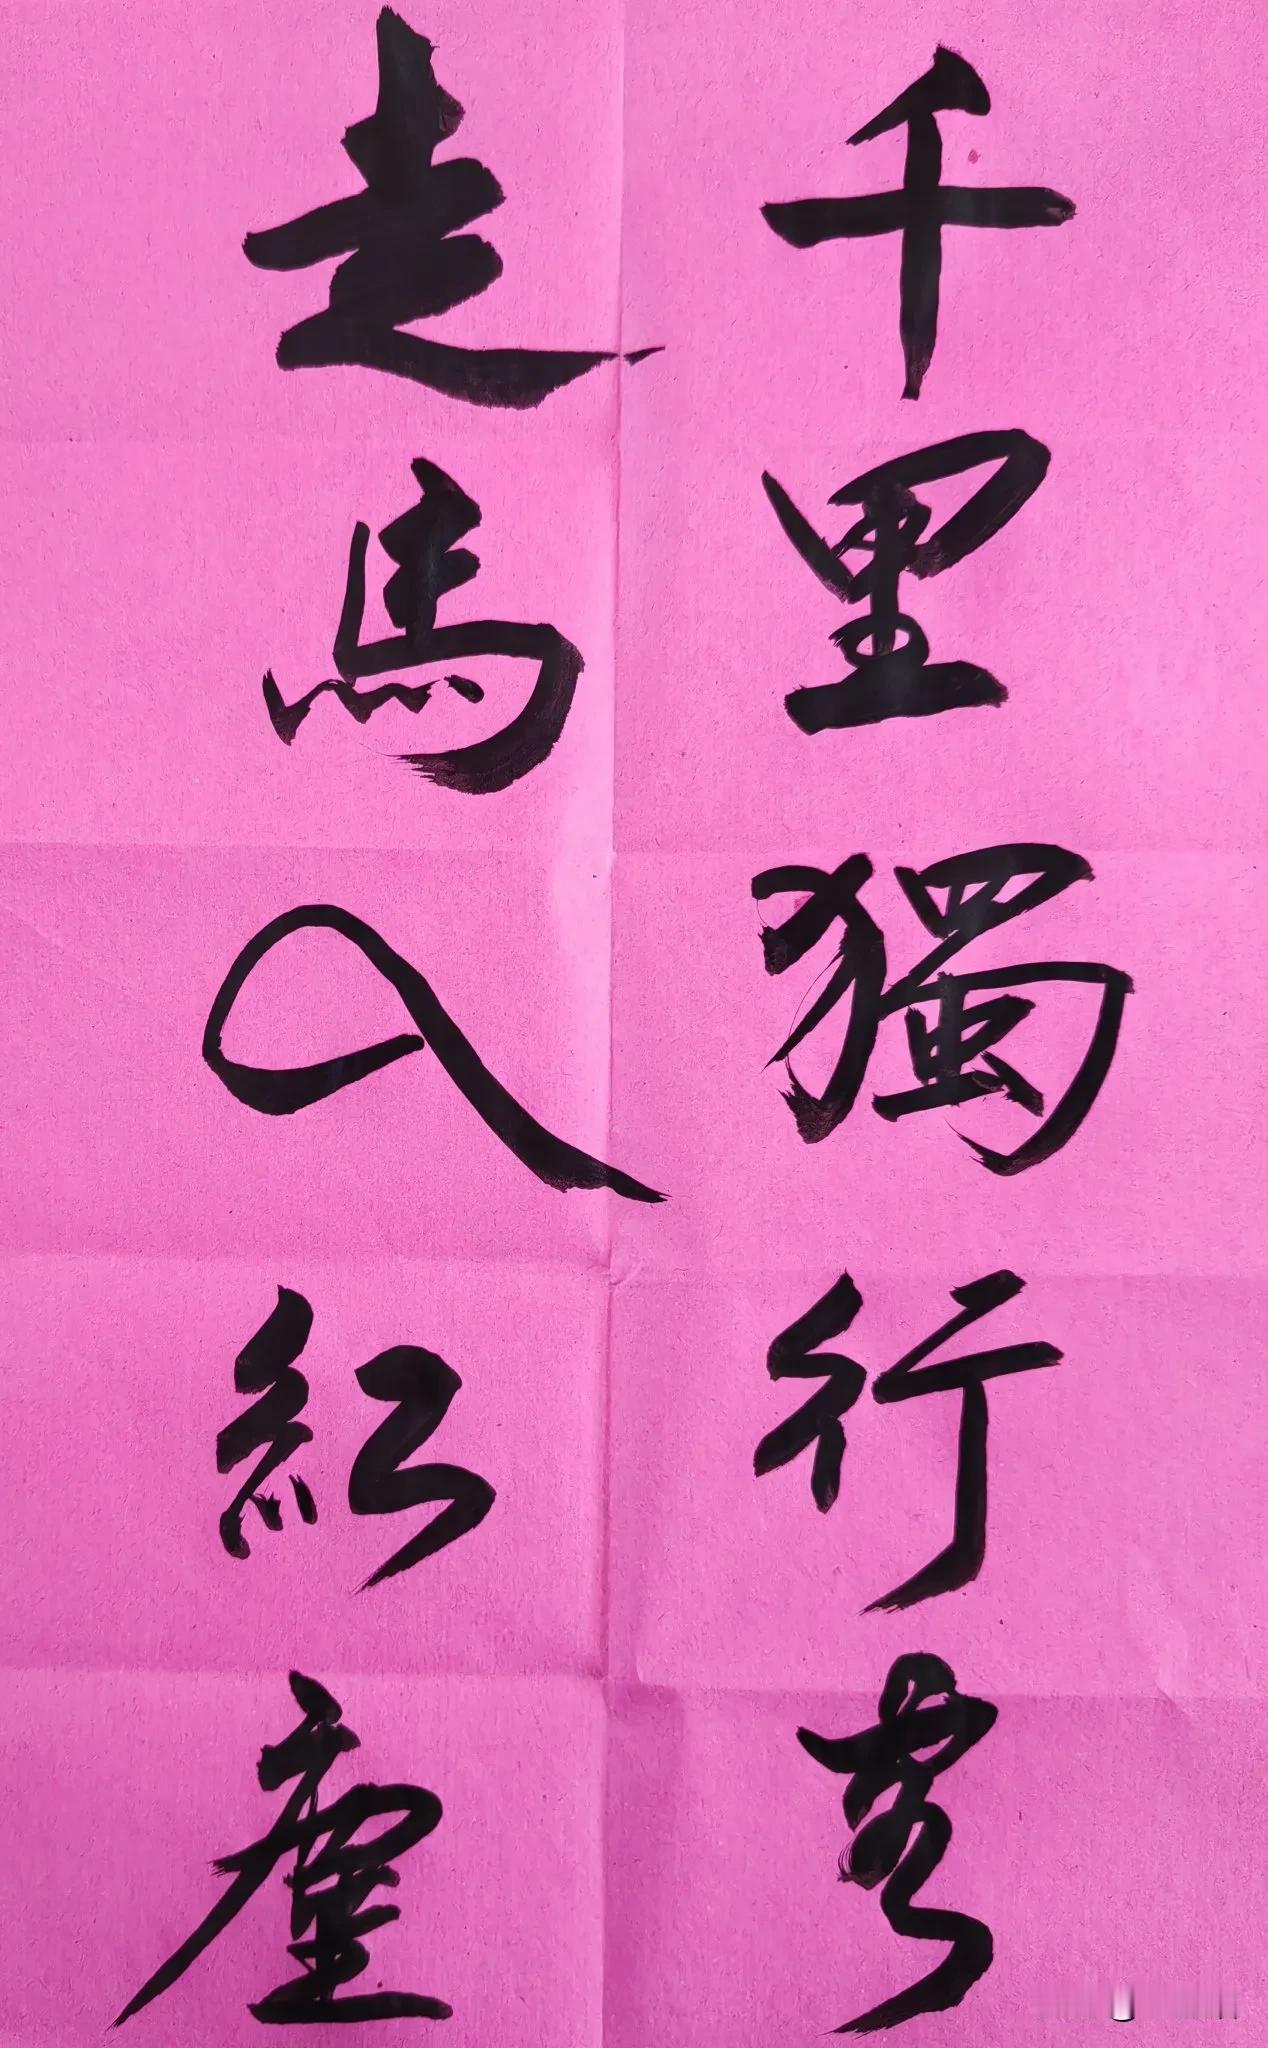 千里獨行客
走馬入紅塵